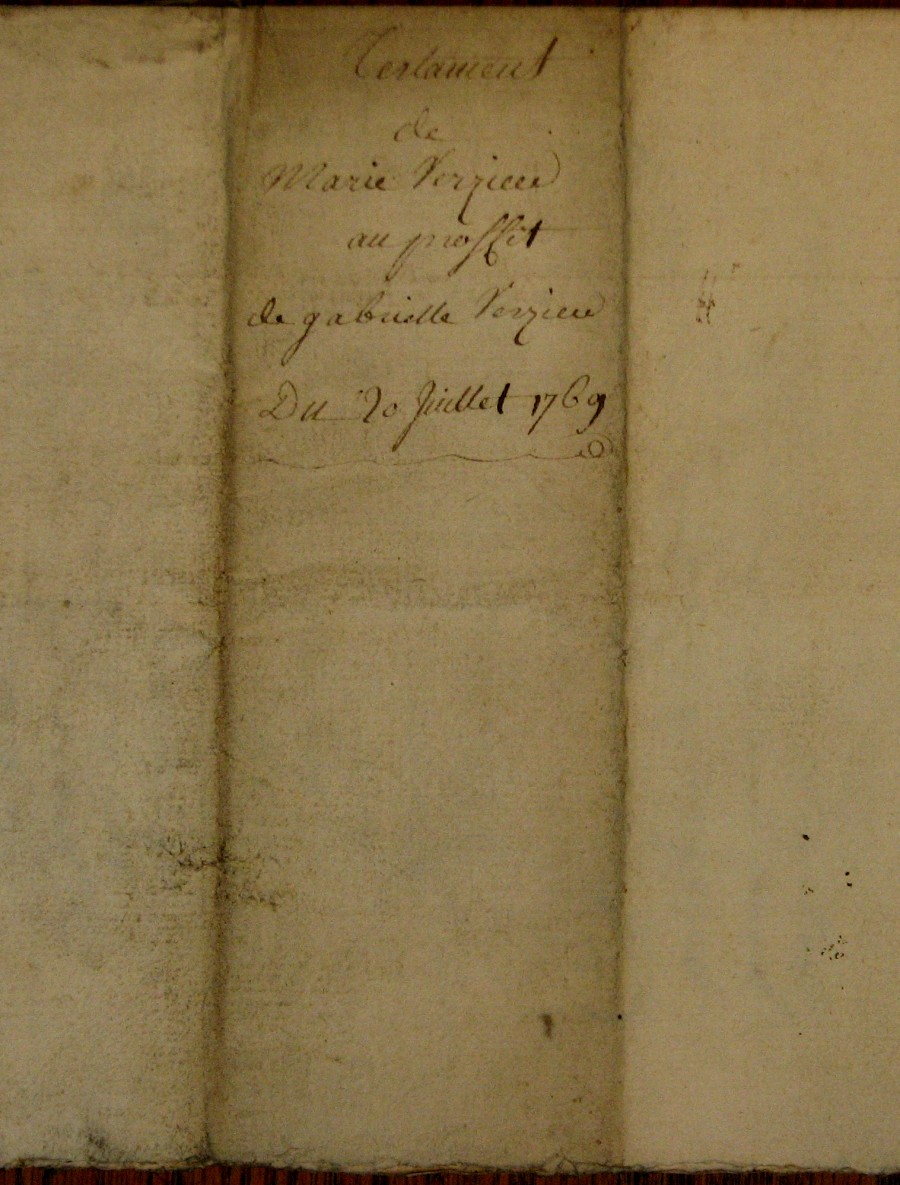 Testament
de
Marie Verziere
au proffit
de gabrielle Verziere
Du 20 Juillet 1769